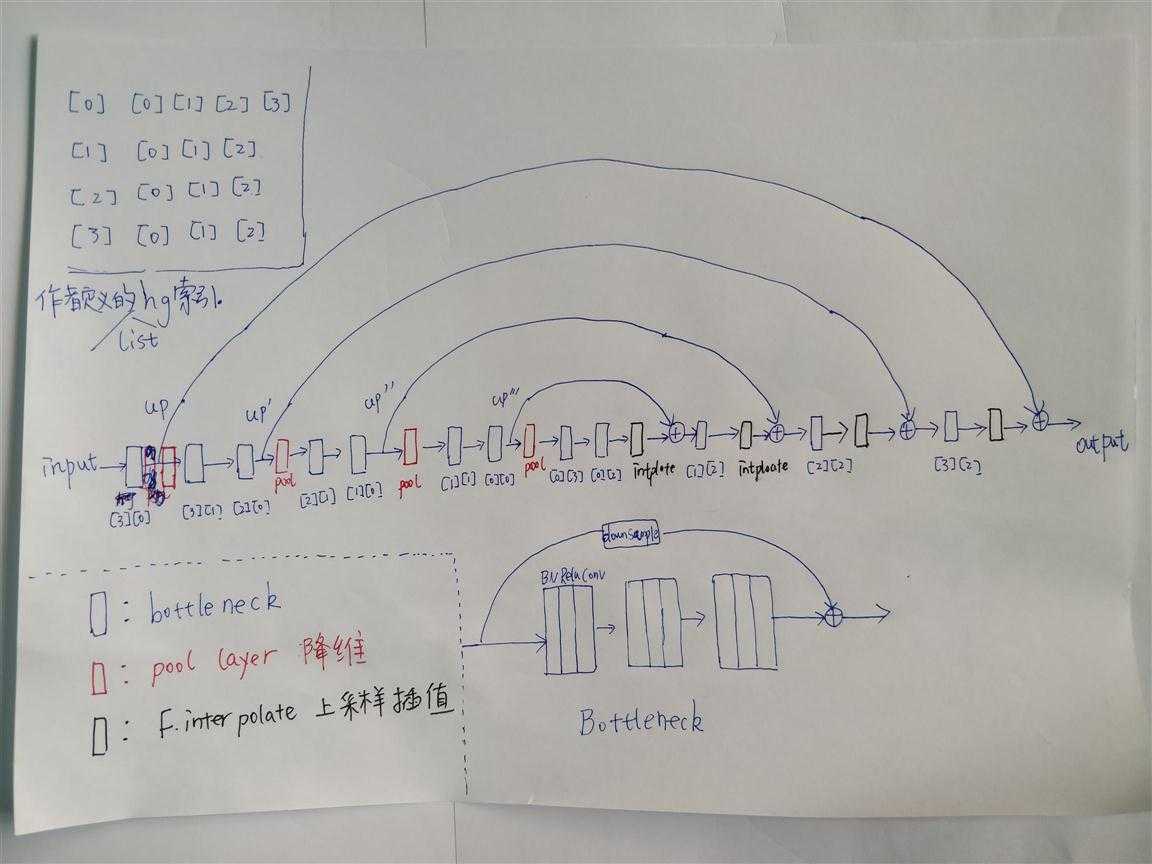 [0] [0] [1] [2] [3]
[1] [0] [1] [2]
[2] [0] [1] [2]
[3] [0] [1] [2]
作者定义的hg索引.
list
up
up'
up''
up'''
input
[3][0]
[3][1]
[2][0]
pool
[2][1]
[1][0]
pool
[1][1]
[0][0]
pool
[0][3]
[0][2]
intplote
[1][2]
intploate
[2][2]
[3][2]
output
: bottleneck
: pool layer 降维
: F.interpolate 上采样插值
downsample
BN Relu Conv
Bottleneck